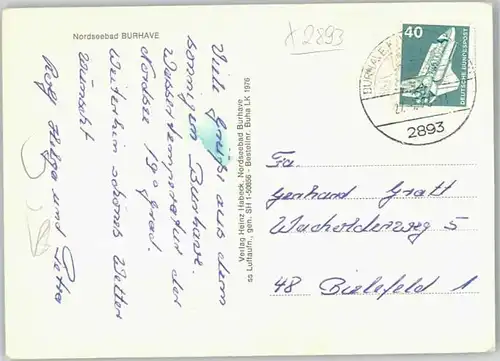 Nordseebad BURHAVE
x 2893
Viele Grüße aus dem
sonnigen Burhave.
Wassertemperatur der
Nordsee 19° Grad.
Weiterhin schönes Wetter
wünscht
Rolf Helga und Petra
Verlag Heinz Habeck, Nordseebad Burhave
ss Luftaufn., gem. SH 1-50656 - Bestellnr. Buha LK 1976
40
DEUTSCHE BUNDESPOST
2893
Fa.
Gerhard Gratt
Wacholderweg 5
48 Bielefeld 1